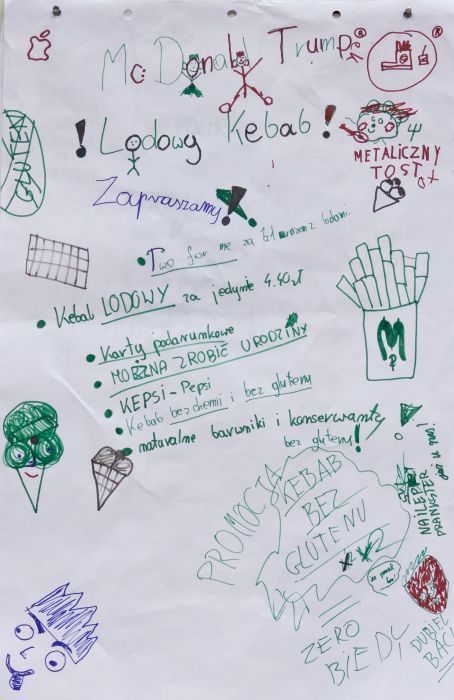 Mc Donald Trump
! Lodowy Kebab !
GLUTEN
METALICZNY
TOST
Zapraszamy!
Two for me za 1zł z lodami
Kebab LODOWY za jedynie 4.40 zł
Karty podarunkowe
MOŻNA ZROBIĆ URODZINY
KEPSI-Pepsi
Kebab bez chemii i bez glutenu
naturalne barwniki i konserwanty
bez glutenu!
M
PROMOCJA
KEBAB
BEZ
GLUTENU
ZERO
BIEDY
NAJLEPSI
PRANKSTER
DUBIEL
BACI